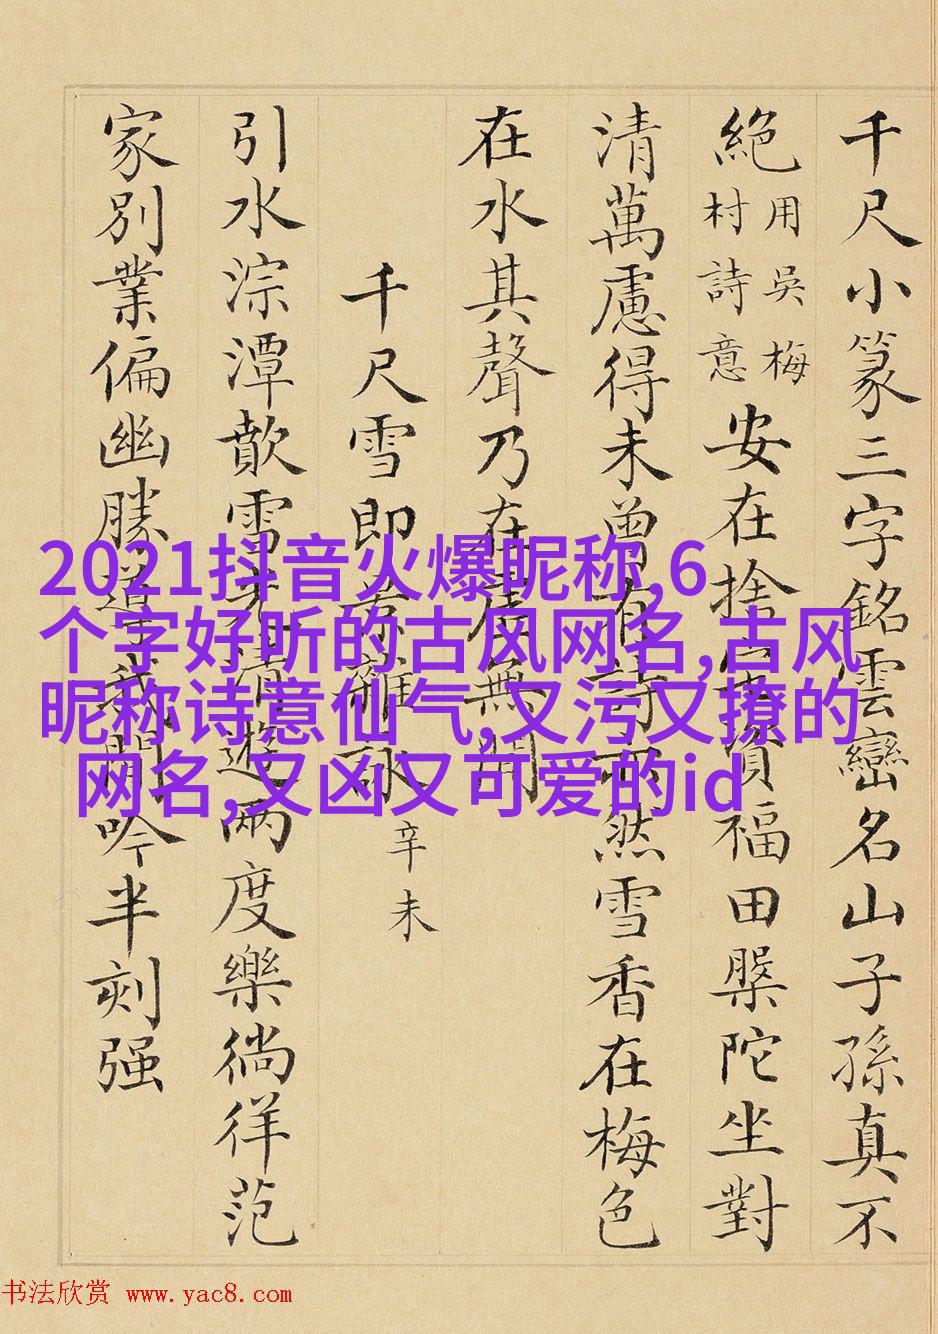 千尺小篆三字銘雲巒名山子孫真不
絕
用吳梅
村詩意
安在捨宅資福田槃陀坐對
清萬慮得未曾有詩亦然雪香在梅色
在水其聲乃在虛無間
千尺雪即景雜詠
辛未
引水淙潭歕雪光清遊兩度樂徜徉范
家別業偏幽勝我閒吟半刻强
2021抖音火爆昵称,6
个字好听的古风网名,古风
昵称诗意仙气,又污又撩的
网名,又凶又可爱的id
书法欣赏 www.yac8.com